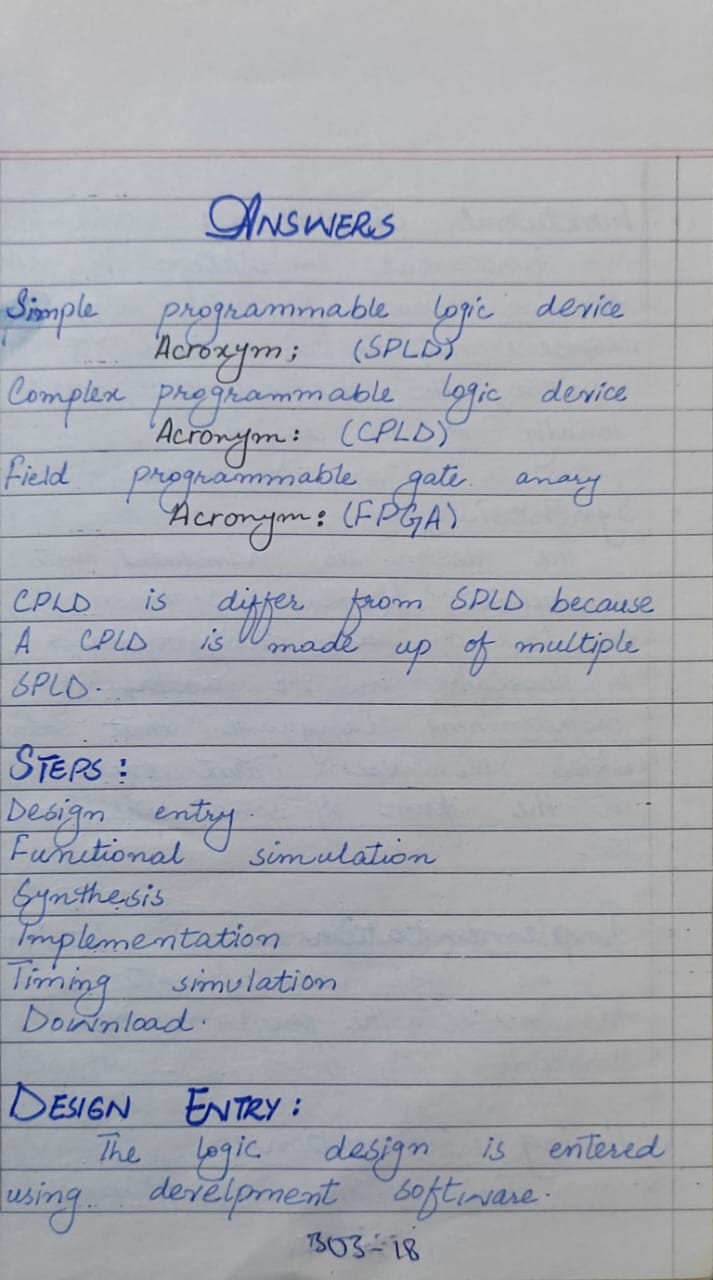 ANSWERS
Simple programmable logic device
Acroxym; (SPLD)
Complex programmable logic device
Acronym: (CPLD)
field programmable gate. anary
Acronym: (FPGA)
CPLD is differ from SPLD because
A CPLD is made up of multiple
SPLD.
STEPS:
Design entry.
Functional simulation
Synthesis
Implementation
Timing simulation
Download.
DESIGN ENTRY:
The logic design is entered
using develpment software.
B03-18